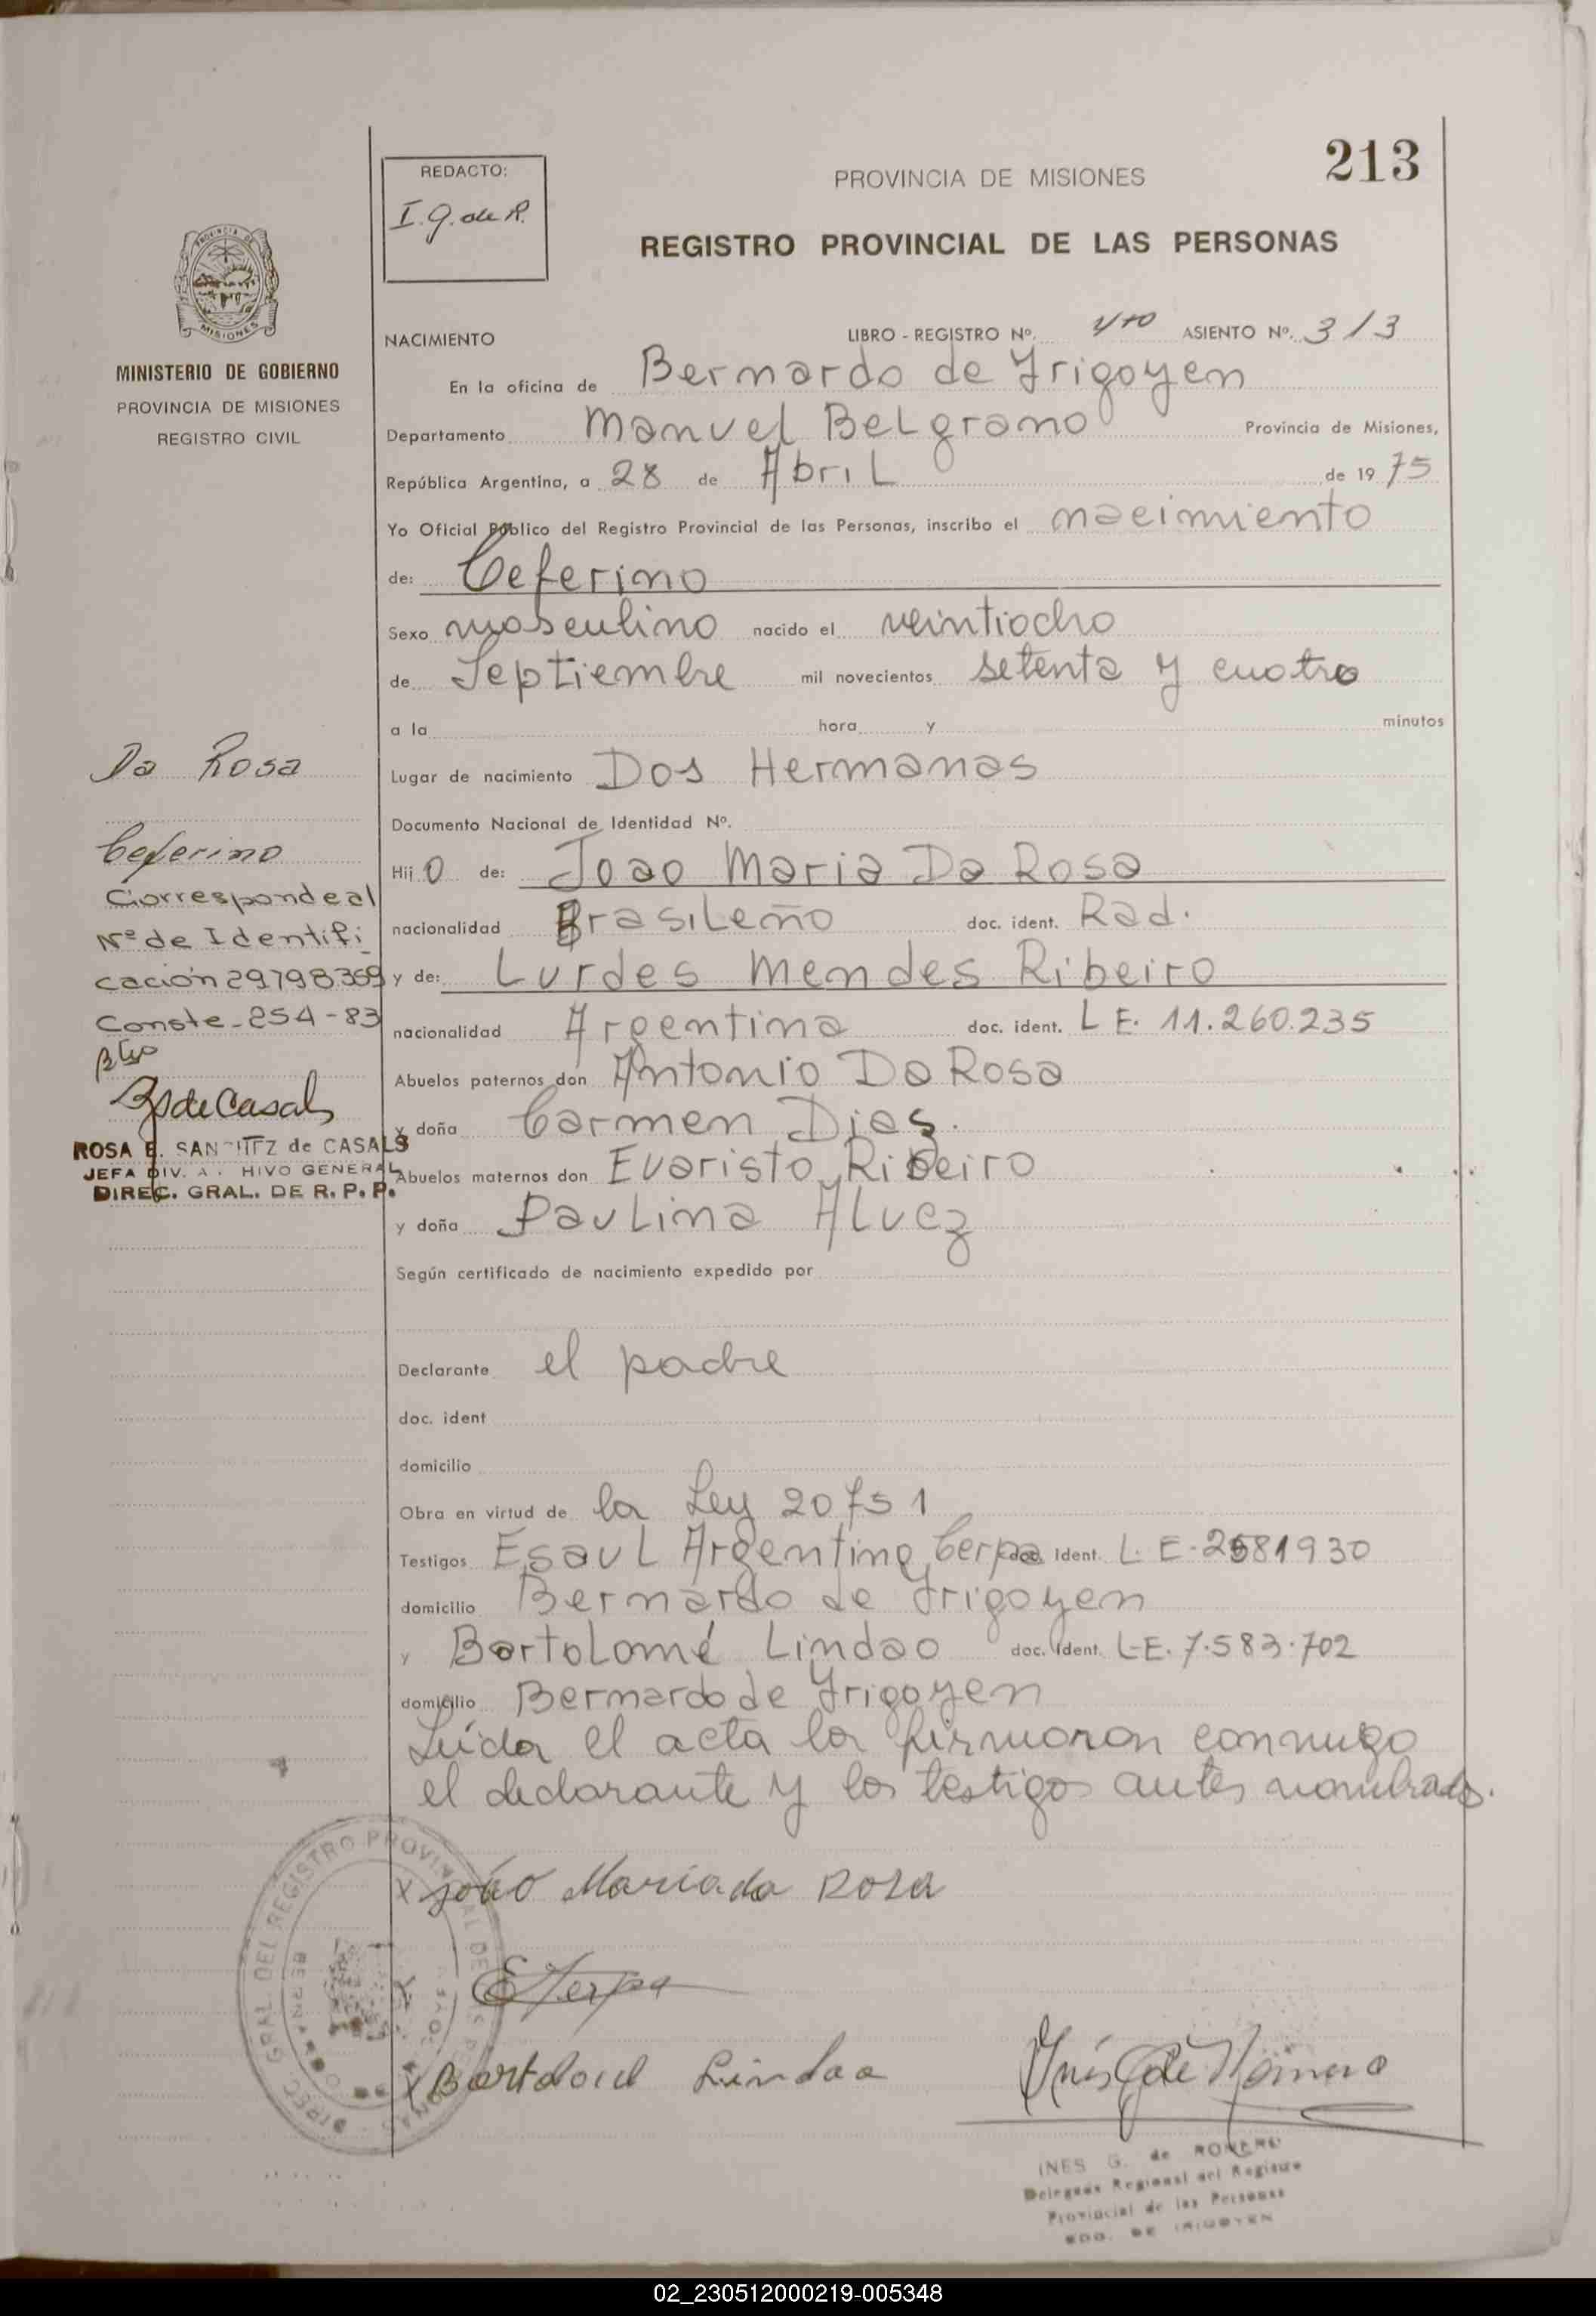 213
REDACTO:
I. G. de R.
PROVINCIA DE MISIONES
REGISTRO PROVINCIAL DE LAS PERSONAS
PROVINCIA DE
MISIONES
MINISTERIO DE GOBIERNO
PROVINCIA DE MISIONES
REGISTRO CIVIL
NACIMIENTO LIBRO - REGISTRO Nº. ASIENTO Nº. 313
En la oficina de Bernardo de Irigoyen
Departamento Manuel Belgrano Provincia de Misiones,
República Argentina, a 28 de Abril de 1975
Yo Oficial Público del Registro Provincial de las Personas, inscribo el nacimiento
de: Ceferino
Sexo masculino nacido el veintiocho
de Septiembre mil novecientos setenta y cuatro
a la hora y minutos
Lugar de nacimiento Dos Hermanas
Documento Nacional de Identidad Nº.
Hijo de: Joao Maria Da Rosa
nacionalidad Brasileño doc. ident. Rad.
y de: Lurdes Mendes Ribeiro
nacionalidad Argentina doc. ident. L E. 11.260.235
Abuelos paternos don Antonio Da Rosa
y doña Carmen Dias.
Abuelos maternos don Evaristo Ribeiro
y doña Paulina Alvez
Según certificado de nacimiento expedido por
Declarante el padre
doc. ident
domicilio
Obra en virtud de la Ley 20751
Testigos Esaul Argentino Cerpa doc. Ident. L. E. 2581930
domicilio Bernardo de Irigoyen
y Bartolomé Lindao doc. Ident. L-E. 7.583.702
domicilio Bernardo de Irigoyen
Leída el acta la firmaron conmigo
el declarante y los testigos antes nombrados.
Da Rosa
Ceferino
Corresponde al
Nº de Identifi
cación 29798369
Conste - 254 - 83
ROSA E. SANCHEZ de CASALS
JEFA DIV. ARCHIVO GENERAL
DIREC. GRAL. DE R. P. P.
X João Maria da Rosa
ECerpa
X Bartolomé Lindao
Inés G de Romero
DIREC. GRAL. DEL REGISTRO PROVINCIAL DE LAS PERSONAS
INES G. de ROMERO
Delegada Regional del Registro
Provincial de las Personas
BDO. DE IRIGOYEN
02_230512000219-005348